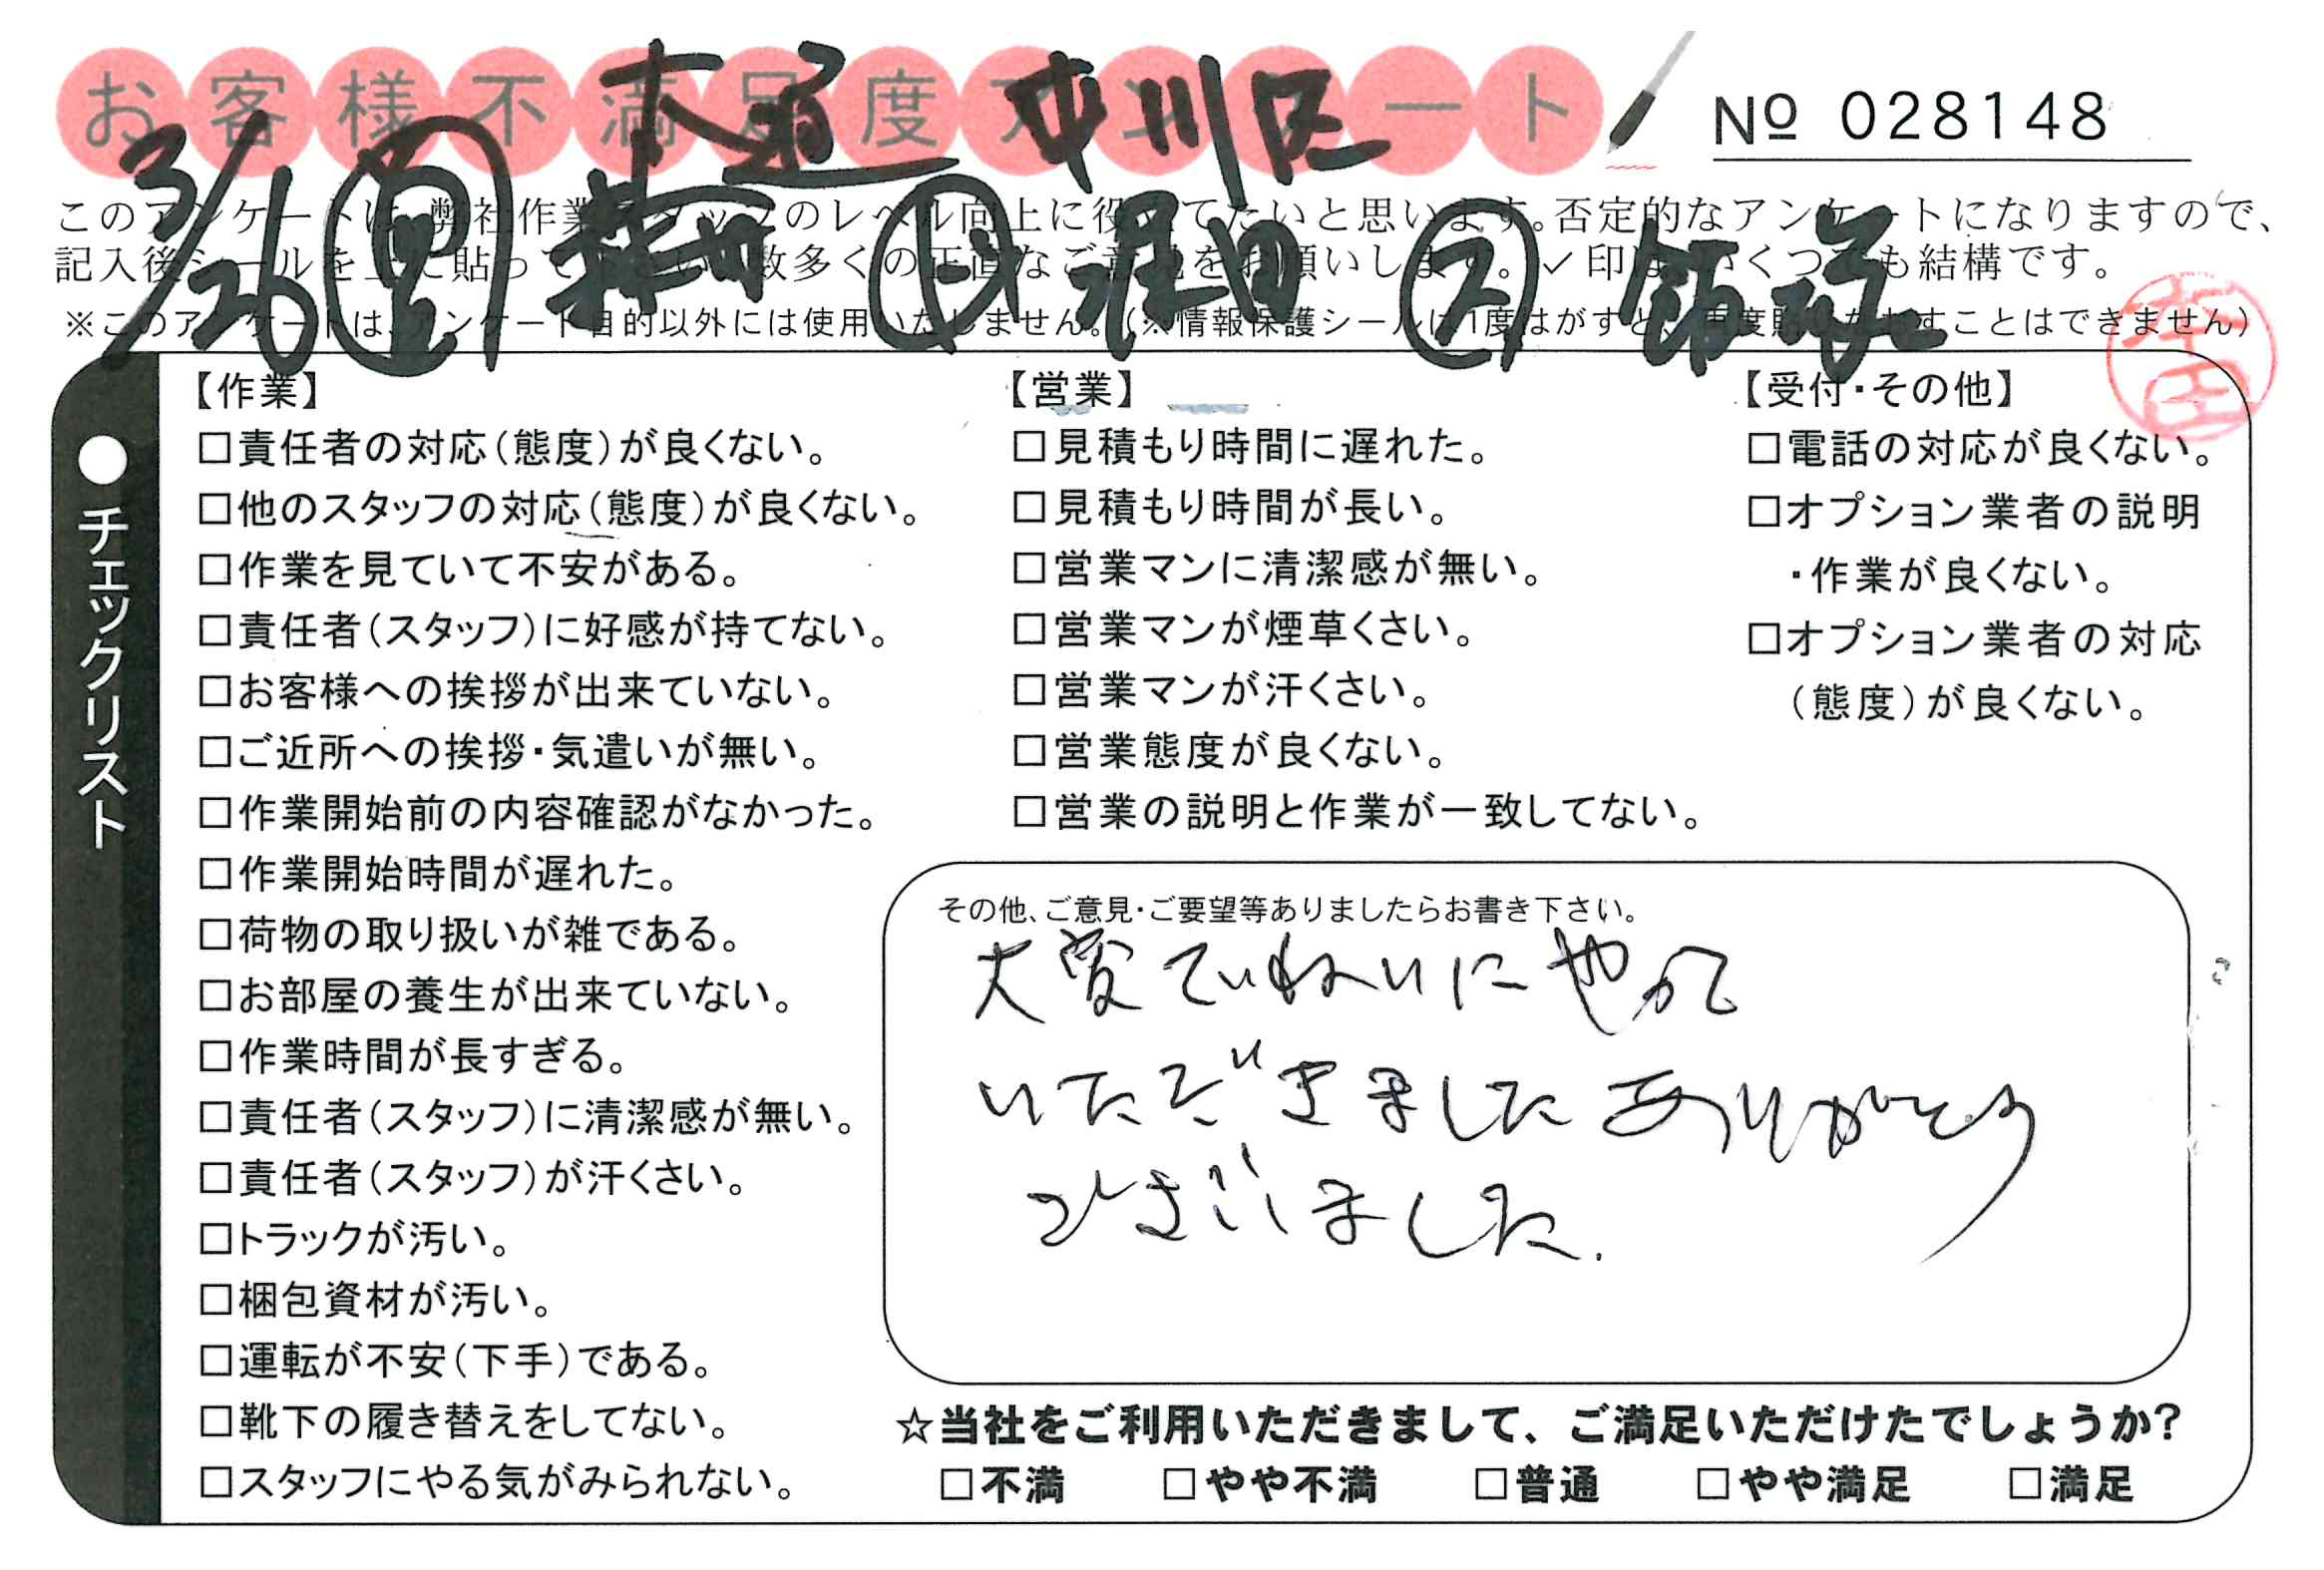 お客様不満足度アンケート
中川区
№ 028148
3/26
このアンケートは、弊社作業スタッフのレベル向上に役立てたいと思います。否定的なアンケートになりますので、
記入後シールを上に貼って下さい。数多くの正直なご意見をお願いします。✓印は、いくつでも結構です。
※このアンケートは、アンケート目的以外には使用いたしません。(※情報保護シールは1度はがすと、再度貼りなおすことはできません)
●チェックリスト
【作業】
□責任者の対応(態度)が良くない。
□他のスタッフの対応(態度)が良くない。
□作業を見ていて不安がある。
□責任者(スタッフ)に好感が持てない。
□お客様への挨拶が出来ていない。
□ご近所への挨拶・気遣いが無い。
□作業開始前の内容確認がなかった。
□作業開始時間が遅れた。
□荷物の取り扱いが雑である。
□お部屋の養生が出来ていない。
□作業時間が長すぎる。
□責任者(スタッフ)に清潔感が無い。
□責任者(スタッフ)が汗くさい。
□トラックが汚い。
□梱包資材が汚い。
□運転が不安(下手)である。
□靴下の履き替えをしてない。
□スタッフにやる気がみられない。
【営業】
□見積もり時間に遅れた。
□見積もり時間が長い。
□営業マンに清潔感が無い。
□営業マンが煙草くさい。
□営業マンが汗くさい。
□営業態度が良くない。
□営業の説明と作業が一致してない。
【受付・その他】
□電話の対応が良くない。
□オプション業者の説明
・作業が良くない。
□オプション業者の対応
(態度)が良くない。
その他、ご意見・ご要望等ありましたらお書き下さい。
大変ていねいにやって
いただきましたありがとう
ございました.
☆当社をご利用いただきまして、ご満足いただけたでしょうか?
□不満 □やや不満 □普通 □やや満足 □満足